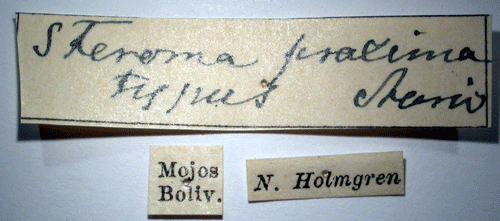 Steroma proxima
typus
Mojos
Boliv.
N. Holmgren